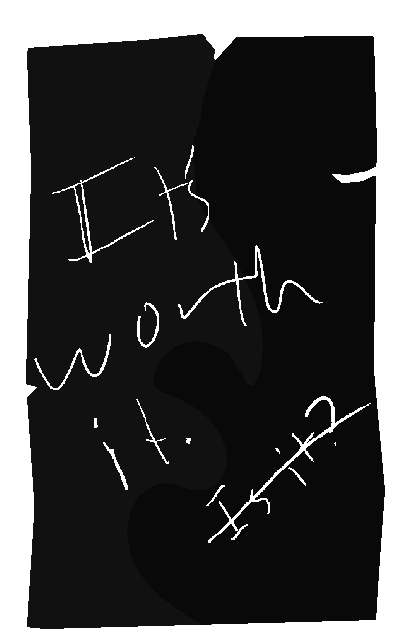 It's
worth
it.
Is it?